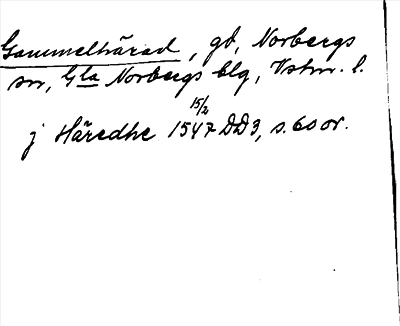 Gammelhärad, gd, Norbergs
sn, Gla Norbergs blg, Vstm. l.
j Häredhe 1547 15/2 DD3, s. 60 or.